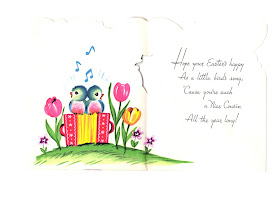 Hope your Easter's happy
As a little bird's song,
'Cause you're such
a Nice Cousin
All the year long!